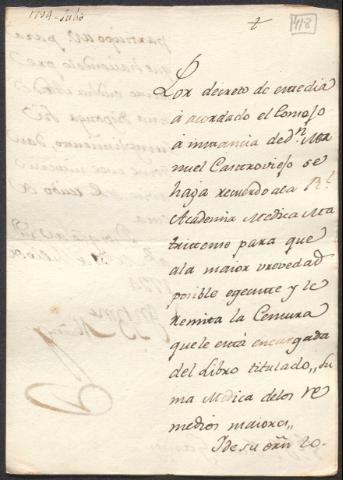 1794 - Julio
418
Por decreto de este dia
á acordado el Consejo
á instancia de dn. Ma
nuel Casarroviejo se
haga recuerdo ala Rl.
Academia Medica Ma
tritense para que
ala maior brevedad
posible egecute y le
remita la Censura
que le está encargada
del Libro titulado „Su
ma Medica delos re
medios maiores„
Y de su orñ lo